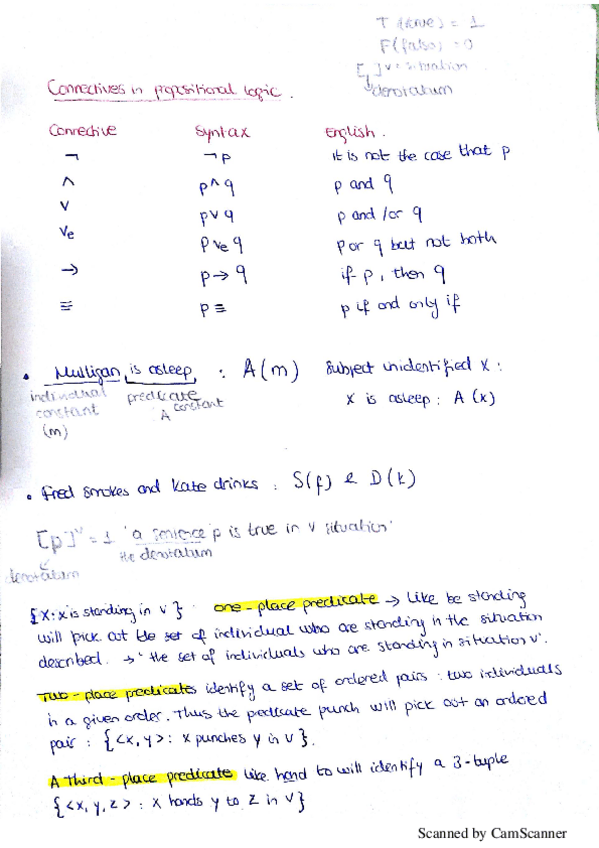 T (true) = 1
F (false) = 0
[ ]v = situation
denotatum
Connectives in propositional logic.
Connective Syntax English.
¬ ¬p it is not the case that p
∧ p ∧ q p and q
∨ p ∨ q p and/or q
Ve p Ve q p or q but not both
→ p → q if p, then q
≡ p ≡ p if and only if
• Mulligan is asleep : A(m) Subject unidentified x :
individual predicate x is asleep : A (x)
constant A constant
(m)
• Fred smokes and Kate drinks : S(f) & D(k)
[p]v = 1 'a sentence p is true in v situation'
the denotatum
denotatum
{x: x is standing in v} one-place predicate → Like be standing
will pick out the set of individual who are standing in the situation
described. → 'the set of individuals who are standing in situation v'.
Two-place predicates identify a set of ordered pairs : two individuals
in a given order. Thus the predicate punch will pick out an ordered
pair : {<x, y> : x punches y in v}.
A Third-place predicate like hand to will identify a 3-tuple
{<x, y, z> : x hands y to z in v}
Scanned by CamScanner